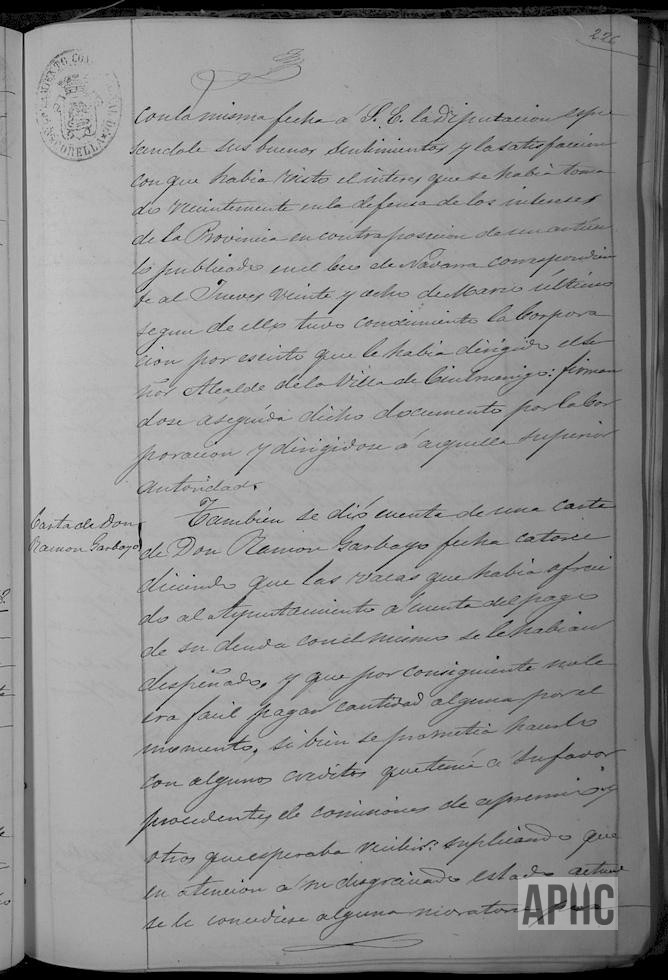 226
con la misma fecha á S. E. la Diputacion espre
sandole sus buenos sentimientos y la satisfaccion
con que habia visto el interes que se habia toma
do recientemente en la defensa de los intereses
de la Provincia en contraposicion de un artícu
lo publicado en el Eco de Navarra correspondien
te al Jueves veinte y ocho de Marzo último
segun de ello tuvo conocimiento la Corpora
cion por escrito que le habia dirigido el Se
ñor Alcalde de la Villa de Cintruenigo: firman
dose á seguida dicho documento por la Cor
poracion y dirigidose á aquella superior
autoridad.
Carta de Don
Ramon Garbayo
Tambien se dió cuenta de una carta
de Don Ramon Garbayo fecha catorce
diciendo que las vacas que habia ofreci
do al Ayuntamiento á cuenta del pago
de su deuda con el mismo se le habian
despeñado, y que por consiguiente no le
era facil pagar cantidad alguna por el
momento, si bien se prometia hacerlo
con algunos creditos que tenia á su favor
procedentes de comisiones de apremio y
otros que esperaba recibir: suplicando que
en atencion á su desgraciado estado actual
se le concediese alguna moratoria para
APHC